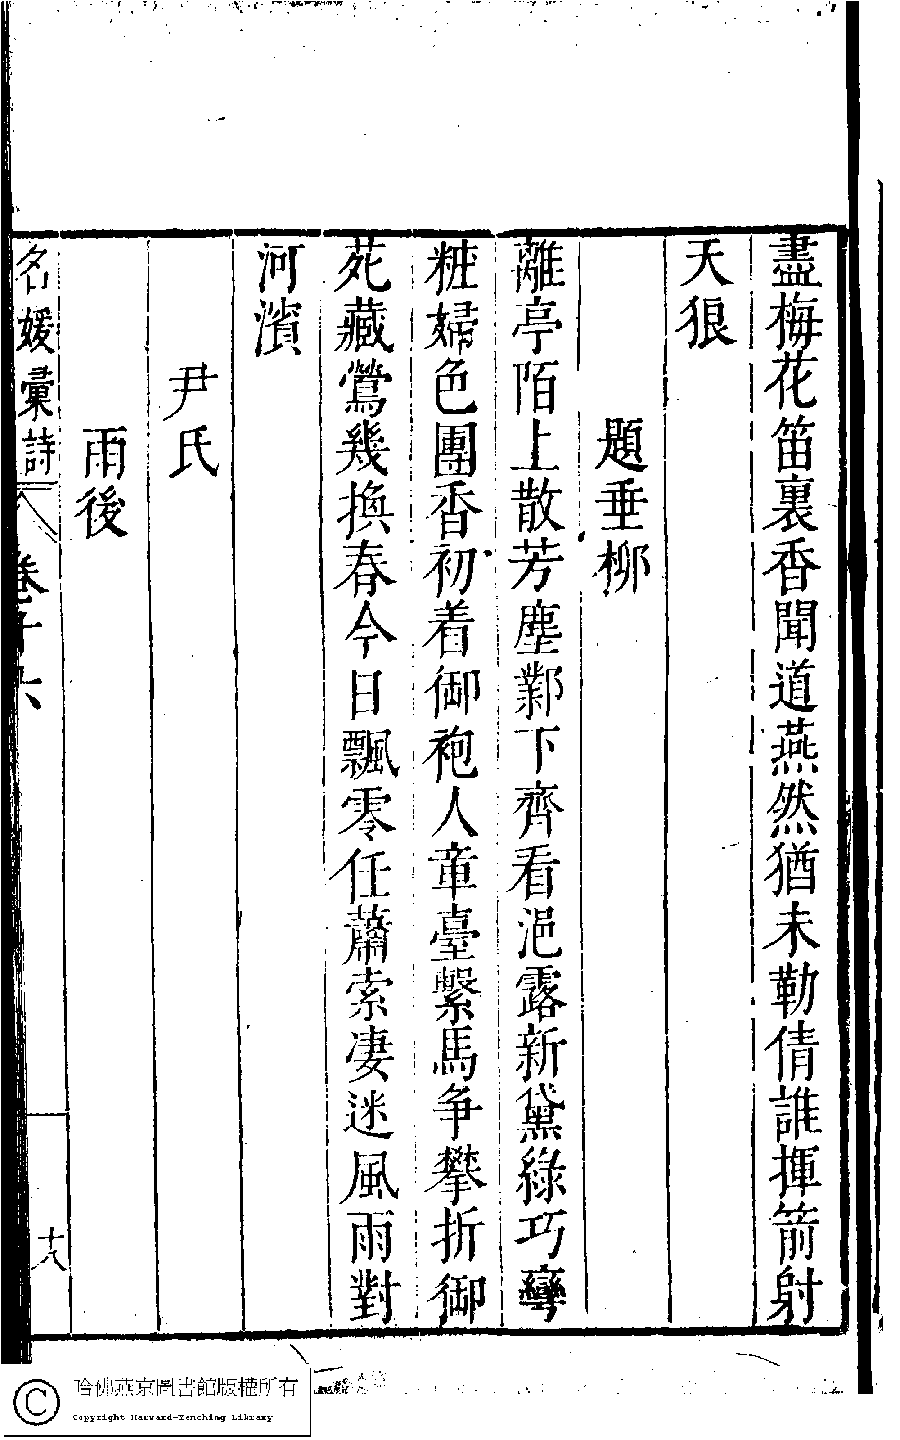 盡梅花笛裏香聞道燕然猶未勒倩誰揮箭射
天狼
題垂柳
離亭陌上散芳塵鄴下齊看浥露新黛綠巧彎
粧婦色團香初着御袍人章臺繫馬争攀折御
苑藏鶯幾換春今日飄零任蕭索凄迷風雨對
河濱
尹氏
雨後
名媛彙詩 卷十六
十八
哈佛燕京圖書館版權所有
Copyright Harvard-Yenching Library